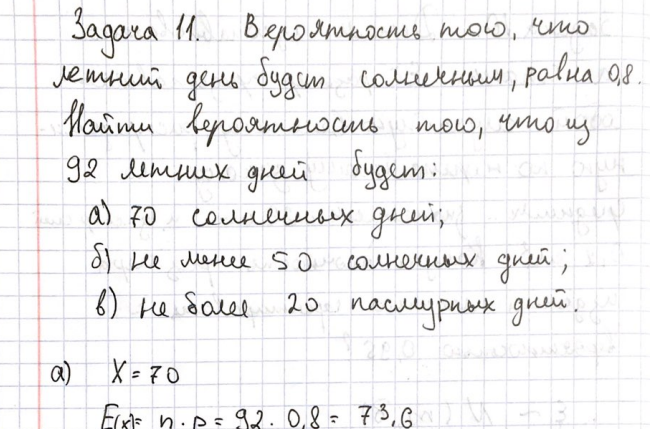 Задача 11. Вероятность того, что
летний день будет солнечным, равна 0,8.
Найти вероятность того, что из
92 летних дней будет:
а) 70 солнечных дней;
б) не менее 50 солнечных дней;
в) не более 20 пасмурных дней.
а) X = 70
E(x)= n·p = 92·0,8 = 73,6